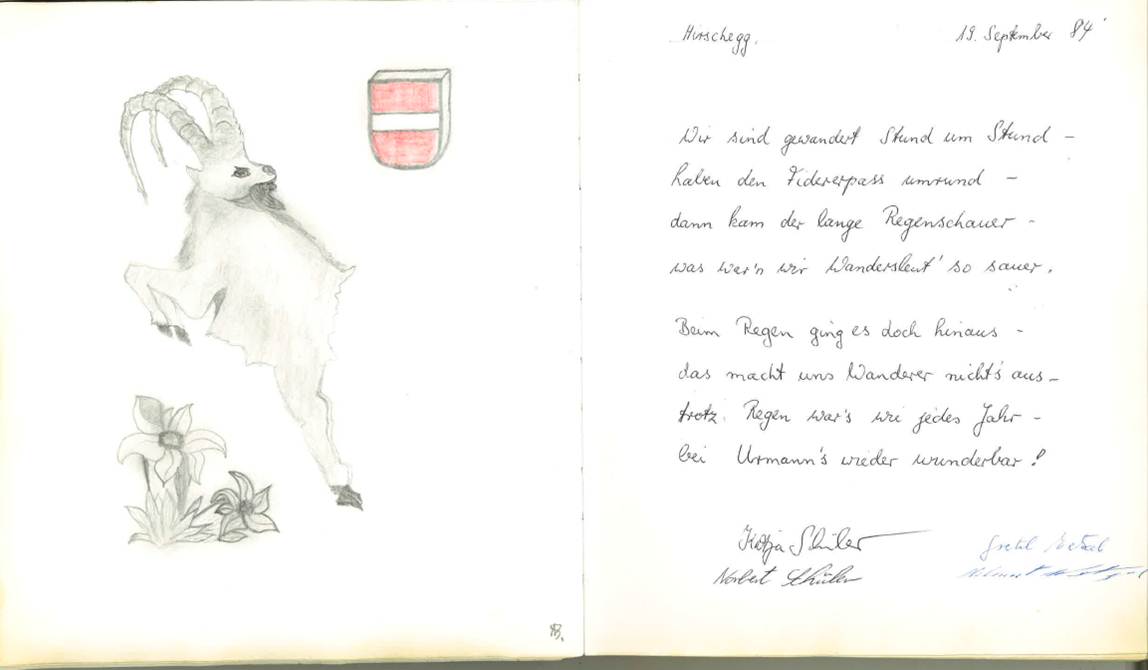 Hirschegg. 19. September 84'
Wir sind gewandert Stund um Stund -
haben den Fidererpass umrund -
dann kam der lange Regenschauer -
was war'n wir Wandersleut' so sauer.
Beim Regen ging es doch hinaus -
das macht uns Wanderer nichts aus -
trotz Regen war's wie jedes Jahr -
bei Urmann's wieder wunderbar!
Katja Schüler
Norbert Schüler